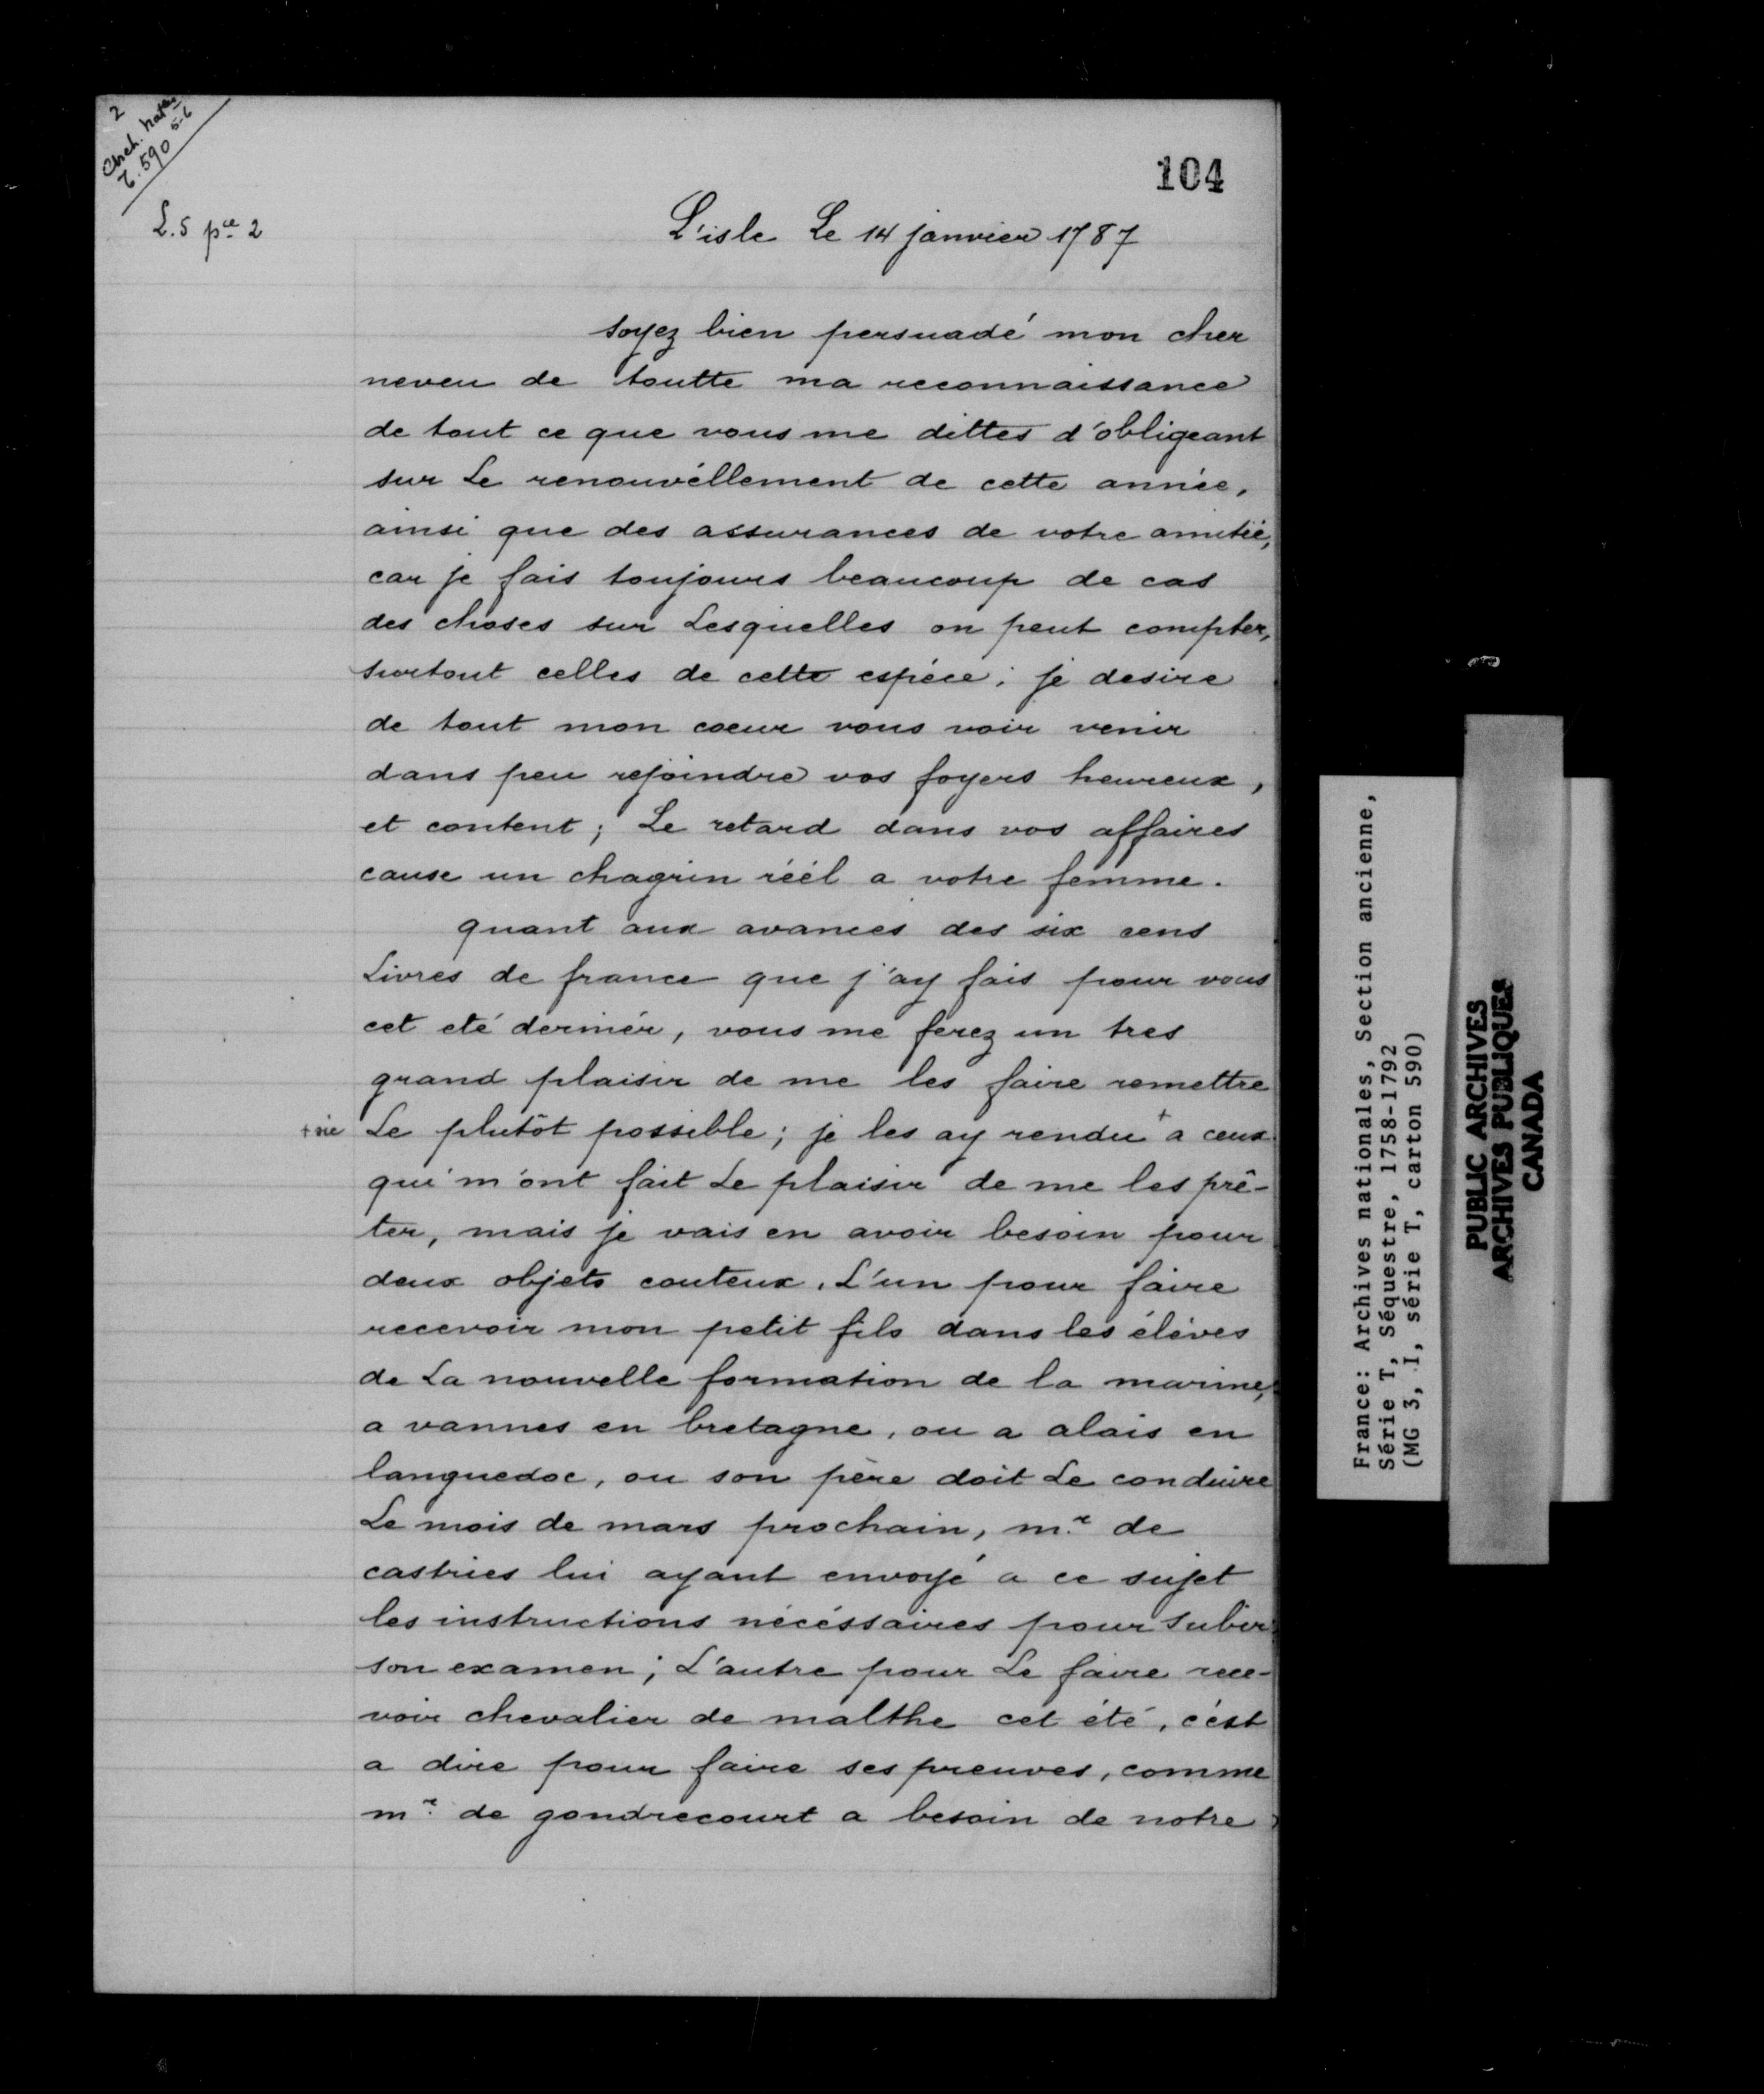 2
Arch. nat^les
T. 590 5-6
L.5 p^ce 2
104
L'isle Le 14 janvier 1787
soyez bien persuadé mon cher
neveu de toutte ma reconnaissance
de tout ce que vous me dittes d'obligeant
sur Le renouvéllement de cette année,
ainsi que des assurances de votre amitié,
car je fais toujours beaucoup de cas
des choses sur Lesquelles on peut compter,
surtout celles de cette espéce; je desire
de tout mon coeur vous voir venir
dans peu rejoindre vos foyers heureux,
et content; Le retard dans vos affaires
cause un chagrin réél a votre femme.
quant aux avances des six cens
Livres de france que j'ay fais pour vous
cet eté derniér, vous me ferez un tres
grand plaisir de me les faire remettre
+ sic Le plutôt possible; je les ay rendu + a ceux
qui m'ont fait Le plaisir de me les prê-
ter, mais je vais en avoir besoin pour
deux objets couteux. L'un pour faire
recevoir mon petit fils dans les éléves
de La nouvelle formation de la marine,
a vannes en bretagne, ou a alais en
languedoc, ou son père doit Le conduire
Le mois de mars prochain, m.r de
castries lui ayant envoyé a ce sujet
les instructions nécéssaires pour subir
son examen; L'autre pour Le faire rece-
voir chevalier de malthe cet été, c'est
a dire pour faire ses preuves, comme
m.r de gondrecourt a besoin de notre
France: Archives nationales, Section ancienne,
Série T, Séquestre, 1758-1792
(MG 3, I, série T, carton 590)
PUBLIC ARCHIVES
ARCHIVES PUBLIQUES
CANADA